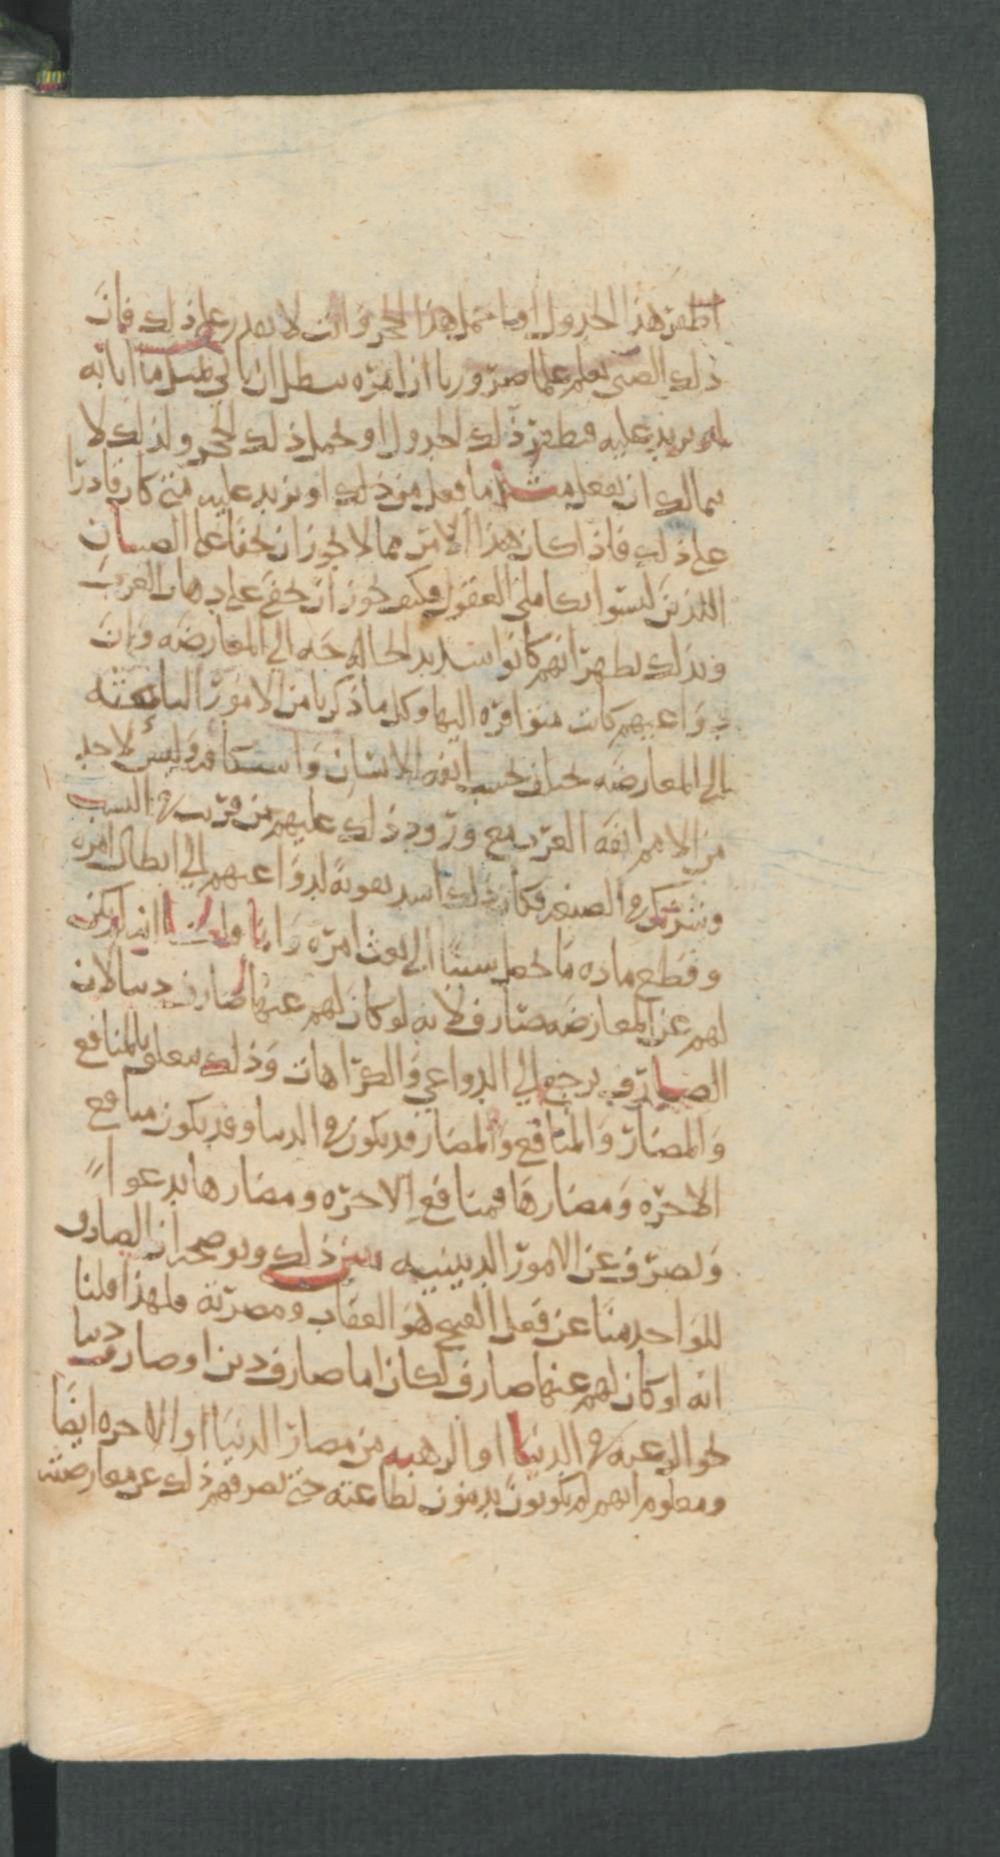 اطفر هذا الجدول او يا يحمل هذا الحجر وانت لا تقدر على ذلك فان
ذلك الصبي يعلم علما ضروريا ان امره يبطل ان ياتي بمثل ما اتا به
او يزيد عليه فيطفر ذلك الجدول او يحمل ذلك الحجر ولذلك لا
يتمالك ان يفعل مثل ما فعل من ذلك او يزيد عليه متى كان قادرا
على ذلك فاذا كان هذا الامر مما لا يجوز ان يخفا على الصبيان
الذين ليسوا بكاملي العقول فكيف يجوز ان يخفى على دهات العرب
وبذلك يظهر انهم كانوا شديد الحاجه الى المعارضه وان
دواعيهم كانت متوافره اليها وكل ما ذكرنا من الامور الباعثه
الى المعارضه يختلف بحسب انفه الانسان و وليس لاحد
من الامم انفة العرب مع ورود ذلك عليهم من قريب في النسب
وشريك في الصنعه فكان ذلك اشد تقوية لدواعيهم الى ابطال امره
وقطع ماده ما يجعل سببا الى امره وانما قلنا انه لم يكن
لهم عن المعارضه صارف لانه لو كان لهم عنها صارف لان
الصارف يرجع الى الدواعي والكراهات وذلك يتعلق بالمنافع
والمضار والمنافع والمضار قد يكون في الدنيا وقد يكون منافع
الاخره ومضارها فمنافع الاخره ومضارها يدعوا
ويصرف عن الامور الدينيه يبين ذلك ويوضحه ان الصارف
للواحد منا عن فعل القبيح هو العقاب ومضرته فلهذا قلنا
انه لو كان لهم عنها صارف لكان اما صارف دين او صارف دنيا
نحو الرغبه في الدنيا او الرهبه من مضار الدنيا او الاخره ايضا
ومعلوم انهم لم يكونون يدينون بطاعته حتى يصرفهم ذلك عن معارضته